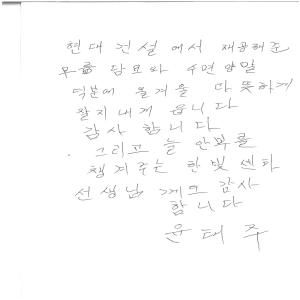 현대건설에서 제공해준
무릎 담요와 수면양말
덕분에 올겨울 따뜻하게
잘지내게 됩니다
감사 합니다
그리고 늘 안부를
챙겨주는 한빛센타
선생님께도 감사
합니다
윤태주